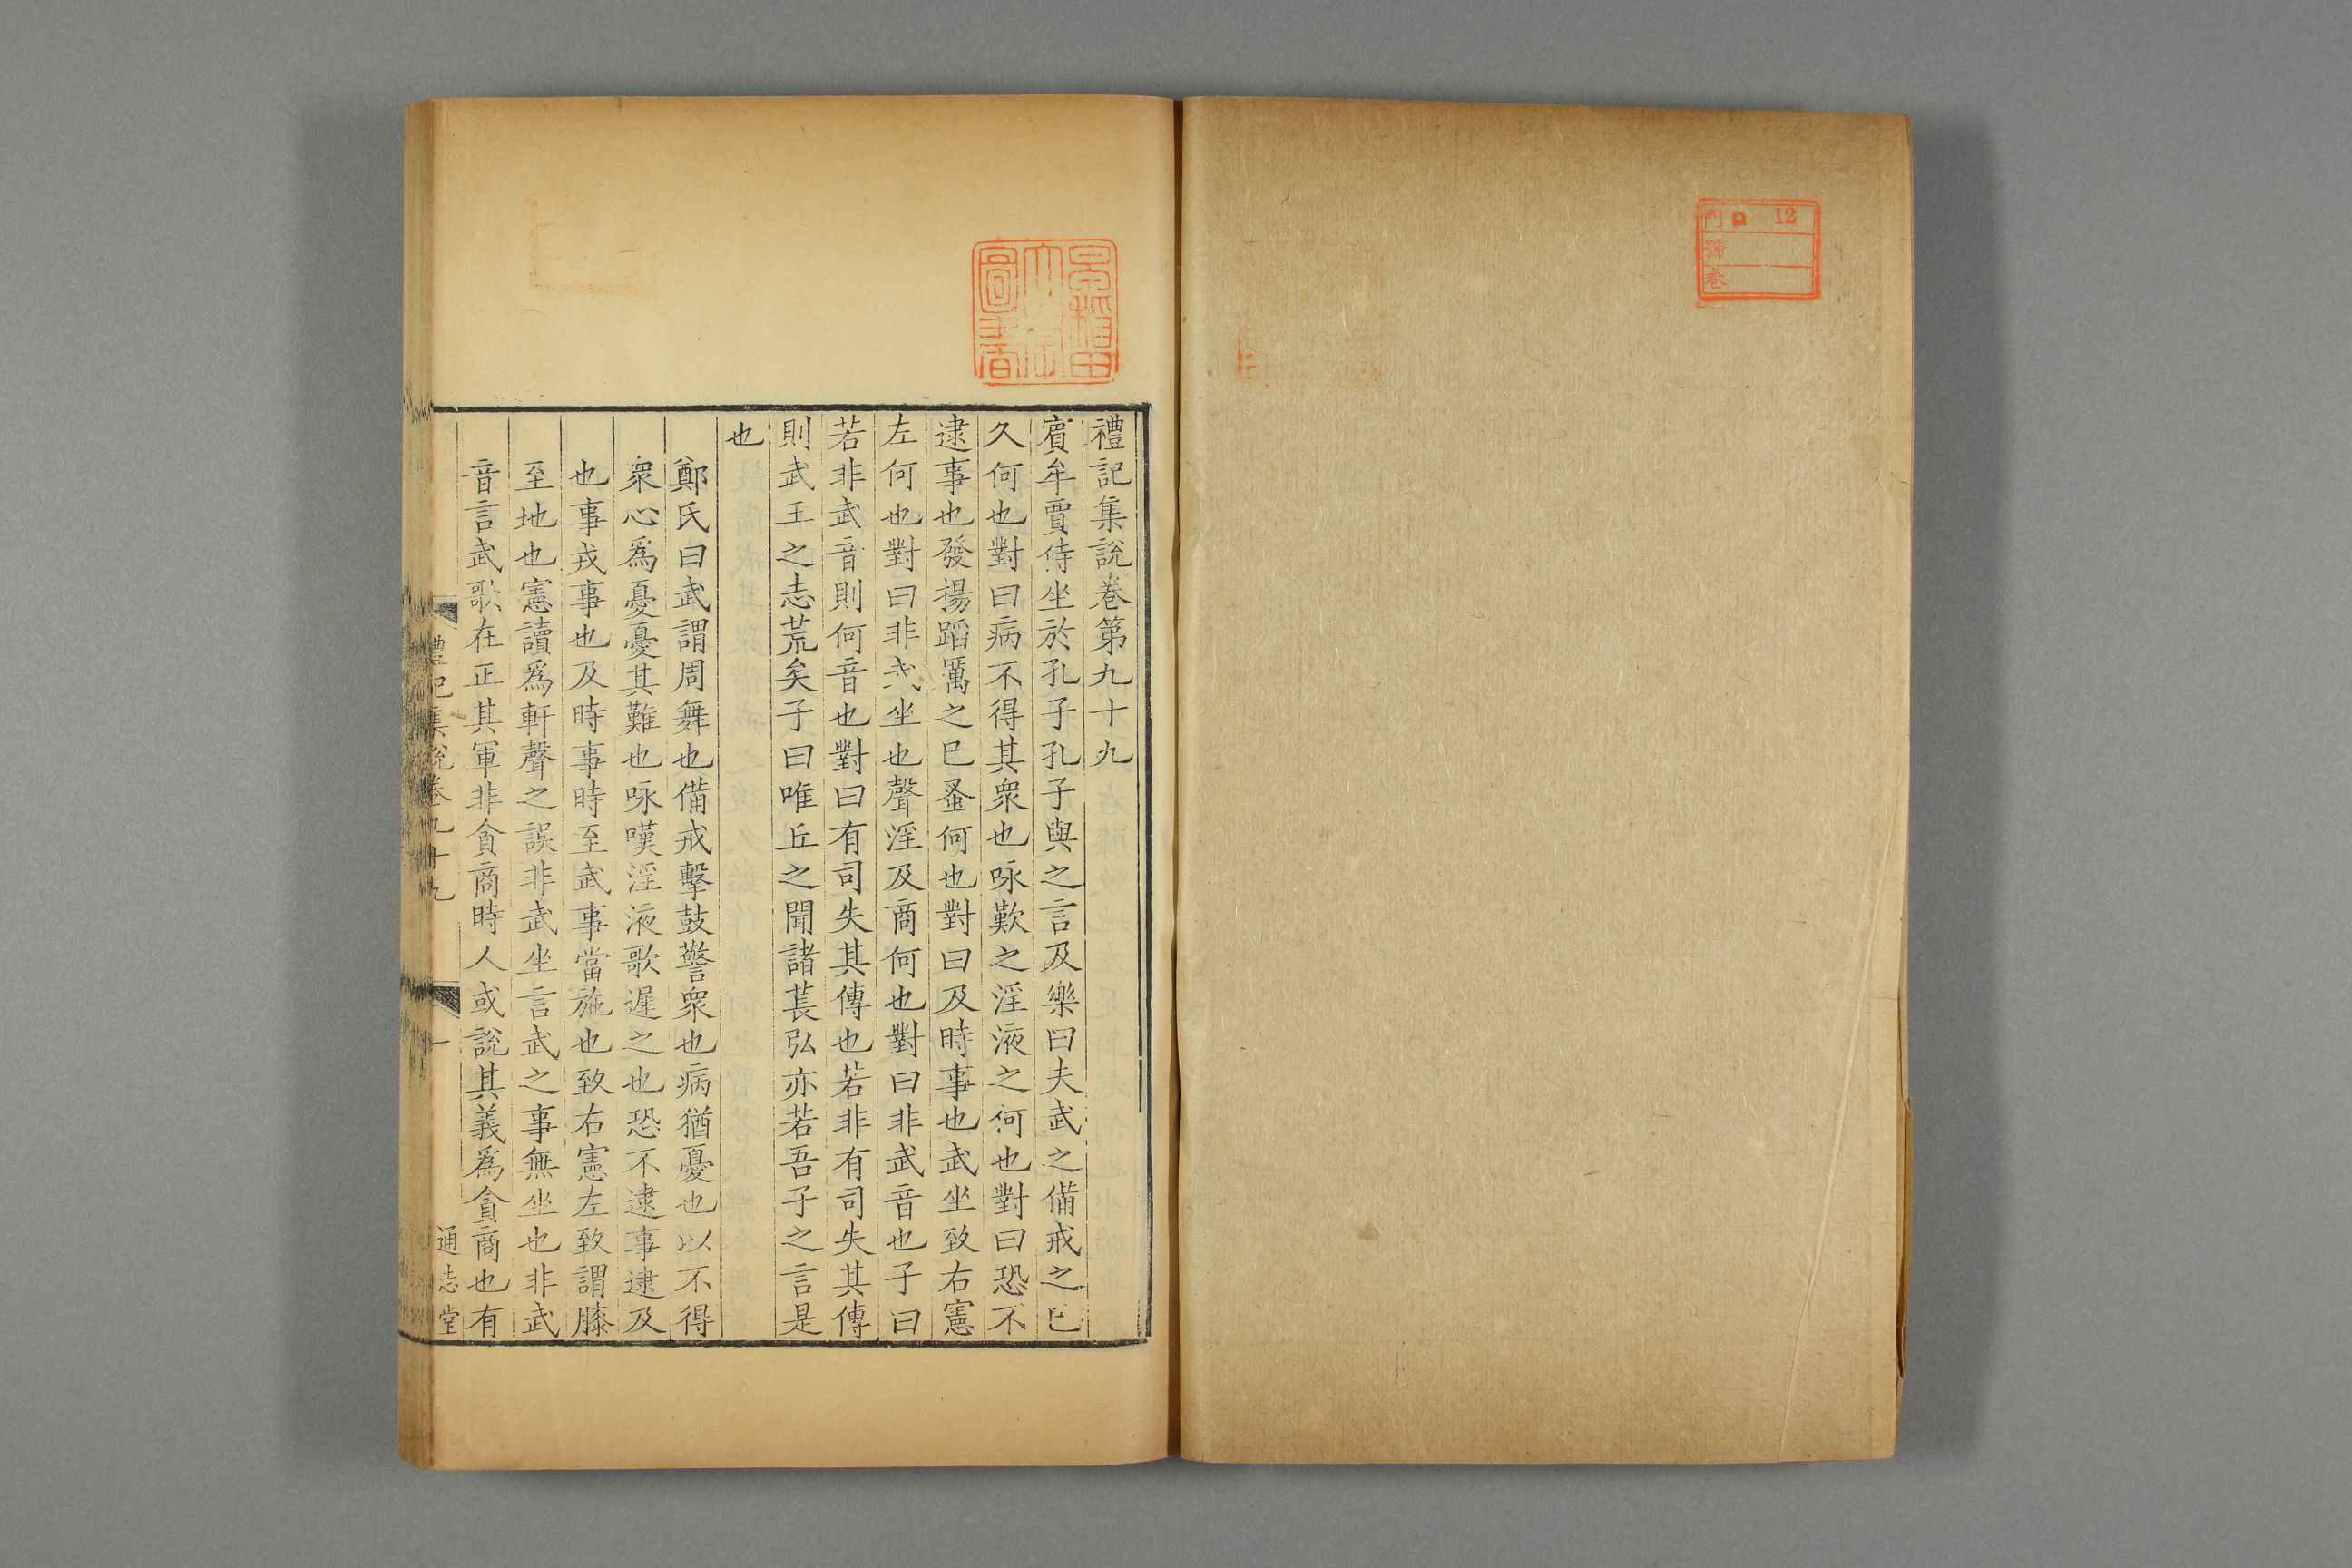 門 12
號
卷
禮記集說卷第九十九
賓牟賈侍坐於孔子孔子與之言及樂曰夫武之備戒之巳
久何也對曰病不得其衆也咏歎之淫液之何也對曰恐不
逮事也發揚蹈厲之巳蚤何也對曰及時事也武坐致右憲
左何也對曰非武坐也聲淫及商何也對曰非武音也子曰
若非武音則何音也對曰有司失其傳也若非有司失其傳
則武王之志荒矣子曰唯丘之聞諸萇弘亦若吾子之言是
也
鄭氏曰武謂周舞也備戒擊鼓警衆也病猶憂也以不得
衆心爲憂憂其難也咏嘆淫液歌遲之也恐不逮事逮及
也事戎事也及時事時至武事當施也致右憲左致謂膝
至地也憲讀爲軒聲之誤非武坐言武之事無坐也非武
音言武歌在正其軍非貪商時人或說其義爲貪商也有
禮記集說卷九十九 一 通志堂